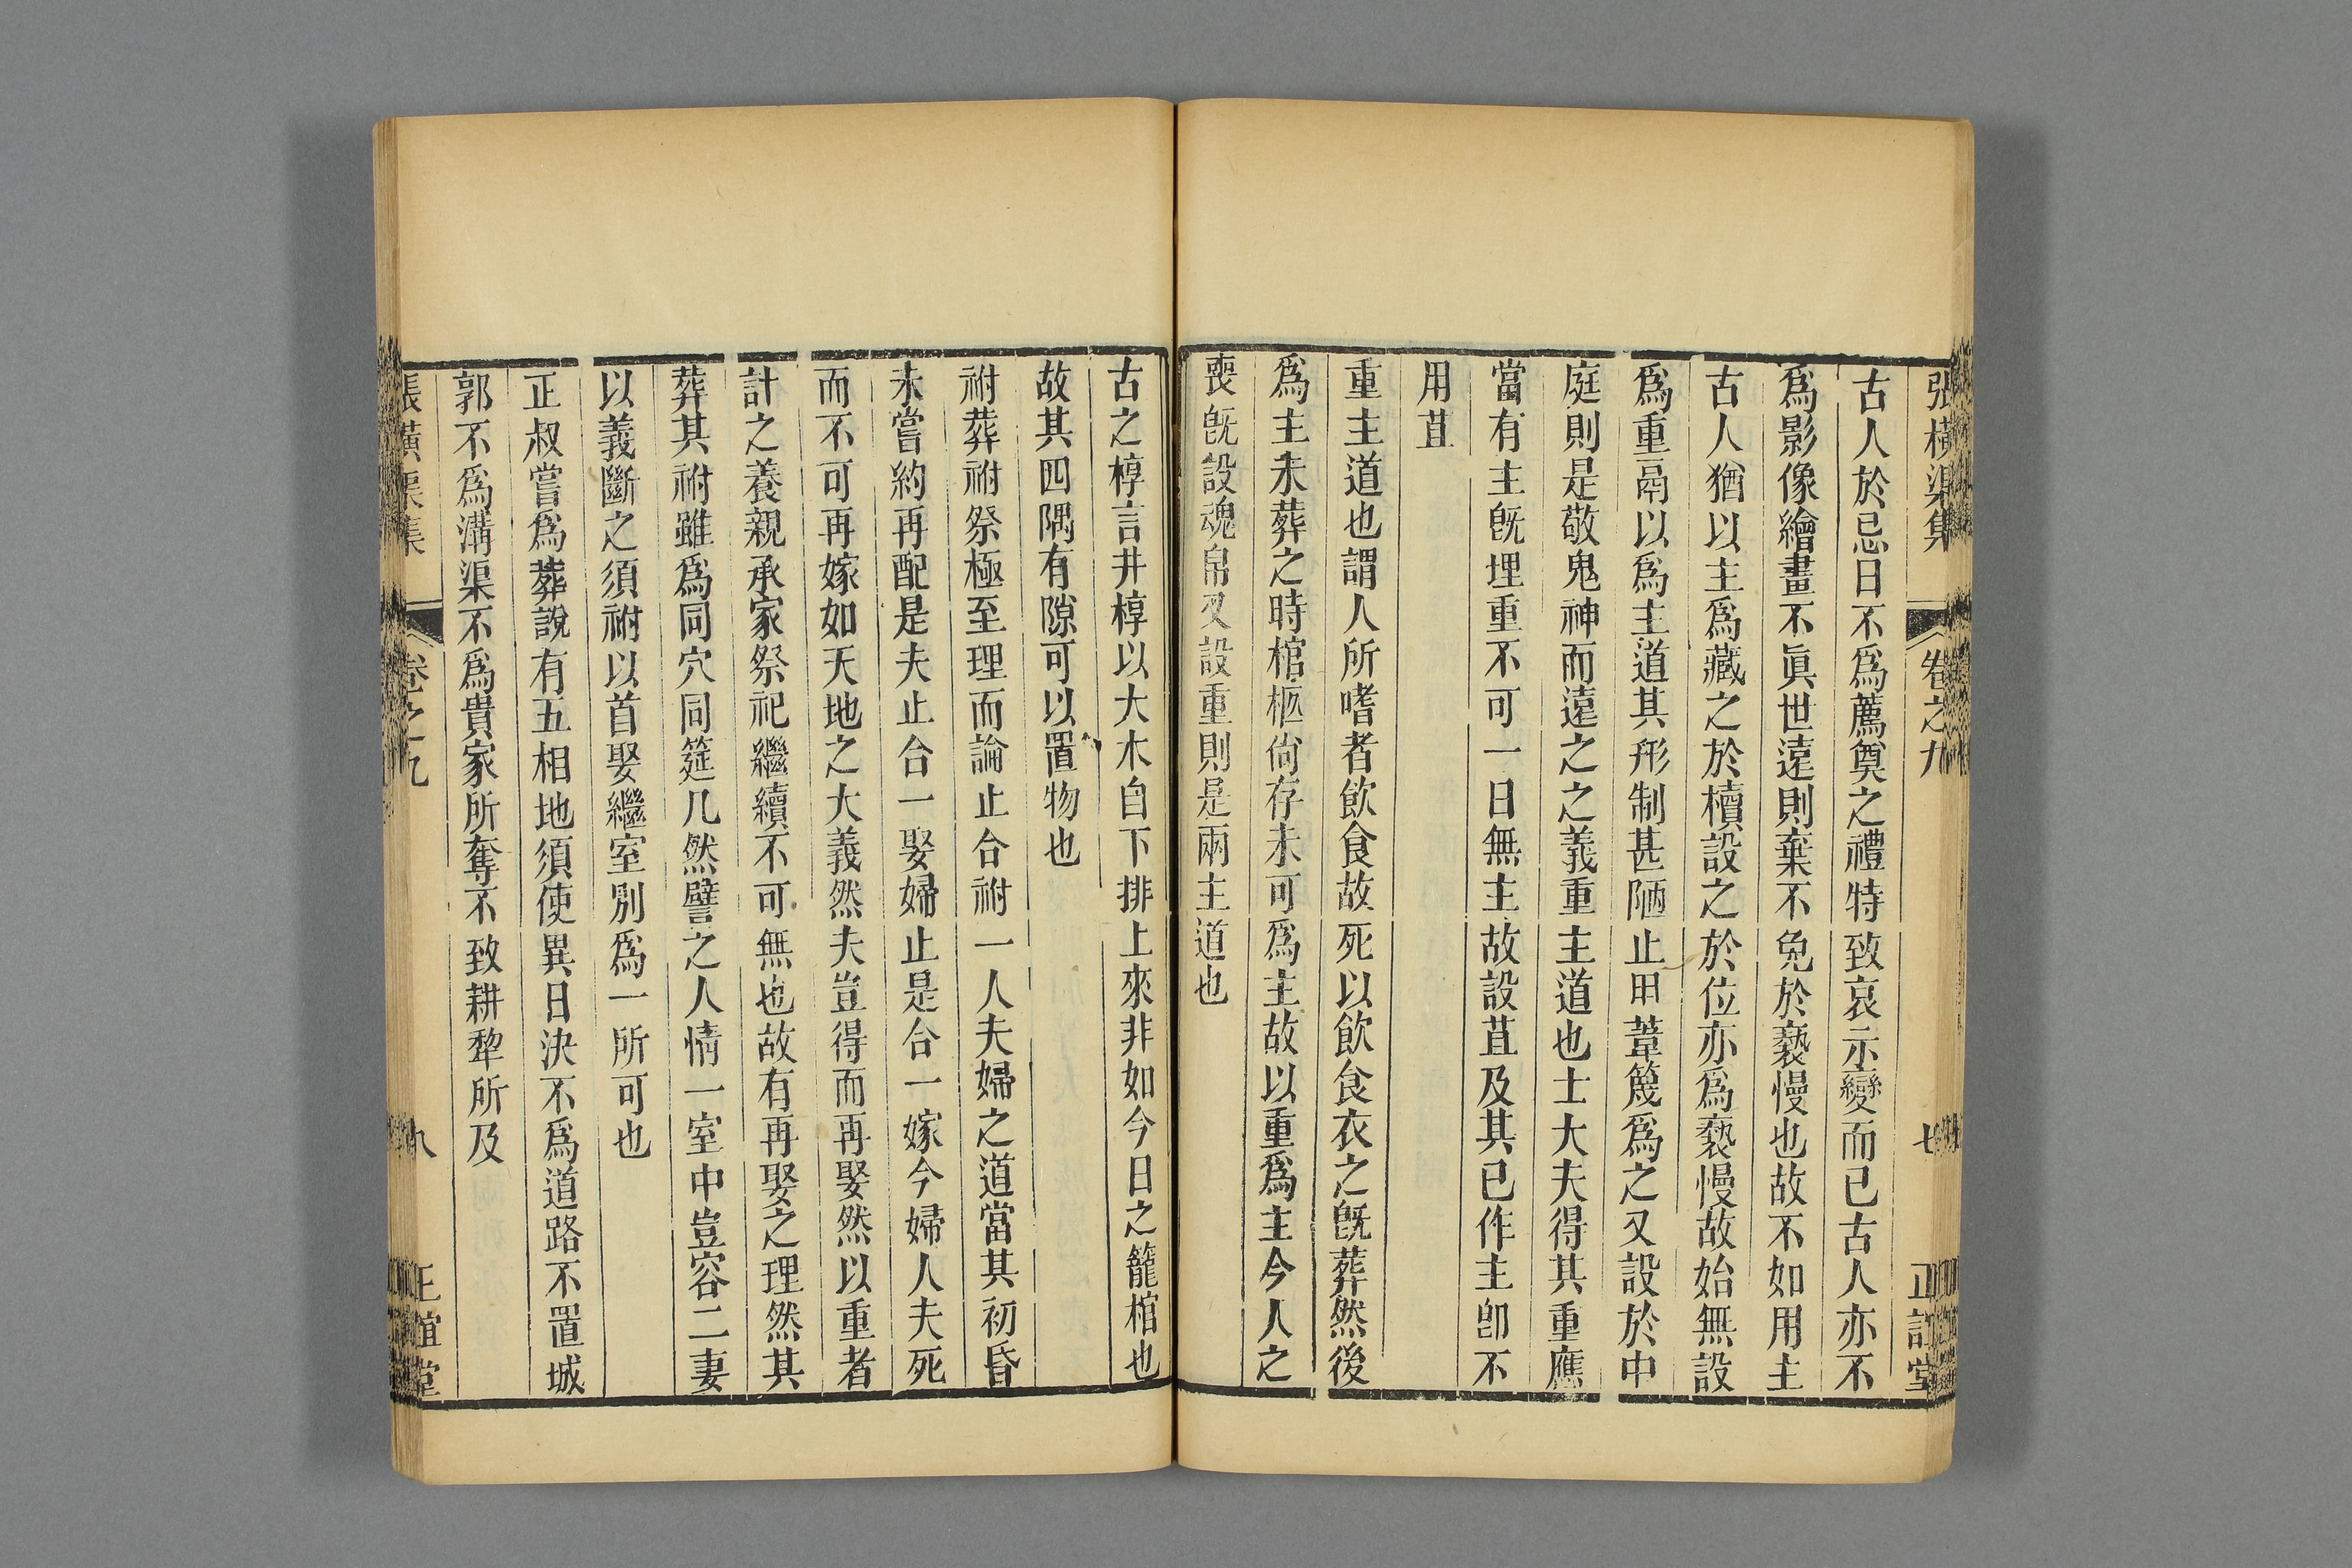 張橫渠集 卷之九 七 正誼堂
古人於忌日不爲薦奠之禮特致哀示變而已古人亦不
爲影像繪畫不眞世遠則棄不免於褻慢也故不如用主
古人猶以主爲藏之於櫝設之於位亦爲褻慢故始無設
爲重鬲以爲主道其形制甚陋止用葦篾爲之又設於中
庭則是敬鬼神而遠之之義重主道也士大夫得其重應
當有主既埋重不可一日無主故設苴及其已作主卽不
用苴
重主道也謂人所嗜者飮食故死以飮食衣之旣葬然後
爲主未葬之時棺柩尙存未可爲主故以重爲主今人之
喪旣設魂帛又設重則是兩主道也
古之椁言井椁以大木自下排上來非如今日之籠棺也
故其四隅有隙可以置物也
祔葬祔祭極至理而論止合祔一人夫婦之道當其初昏
未嘗約再配是夫止合一娶婦止是合一嫁今婦人夫死
而不可再嫁如天地之大義然夫豈得而再娶然以重者
計之養親承家祭祀繼續不可無也故有再娶之理然其
葬其祔雖爲同穴同筵几然譬之人情一室中豈容二妻
以義斷之須祔以首娶繼室別爲一所可也
正叔嘗爲葬說有五相地須使異日決不爲道路不置城
郭不爲溝渠不爲貴家所奪不致耕犂所及
張橫渠集 卷之九 八 正誼堂